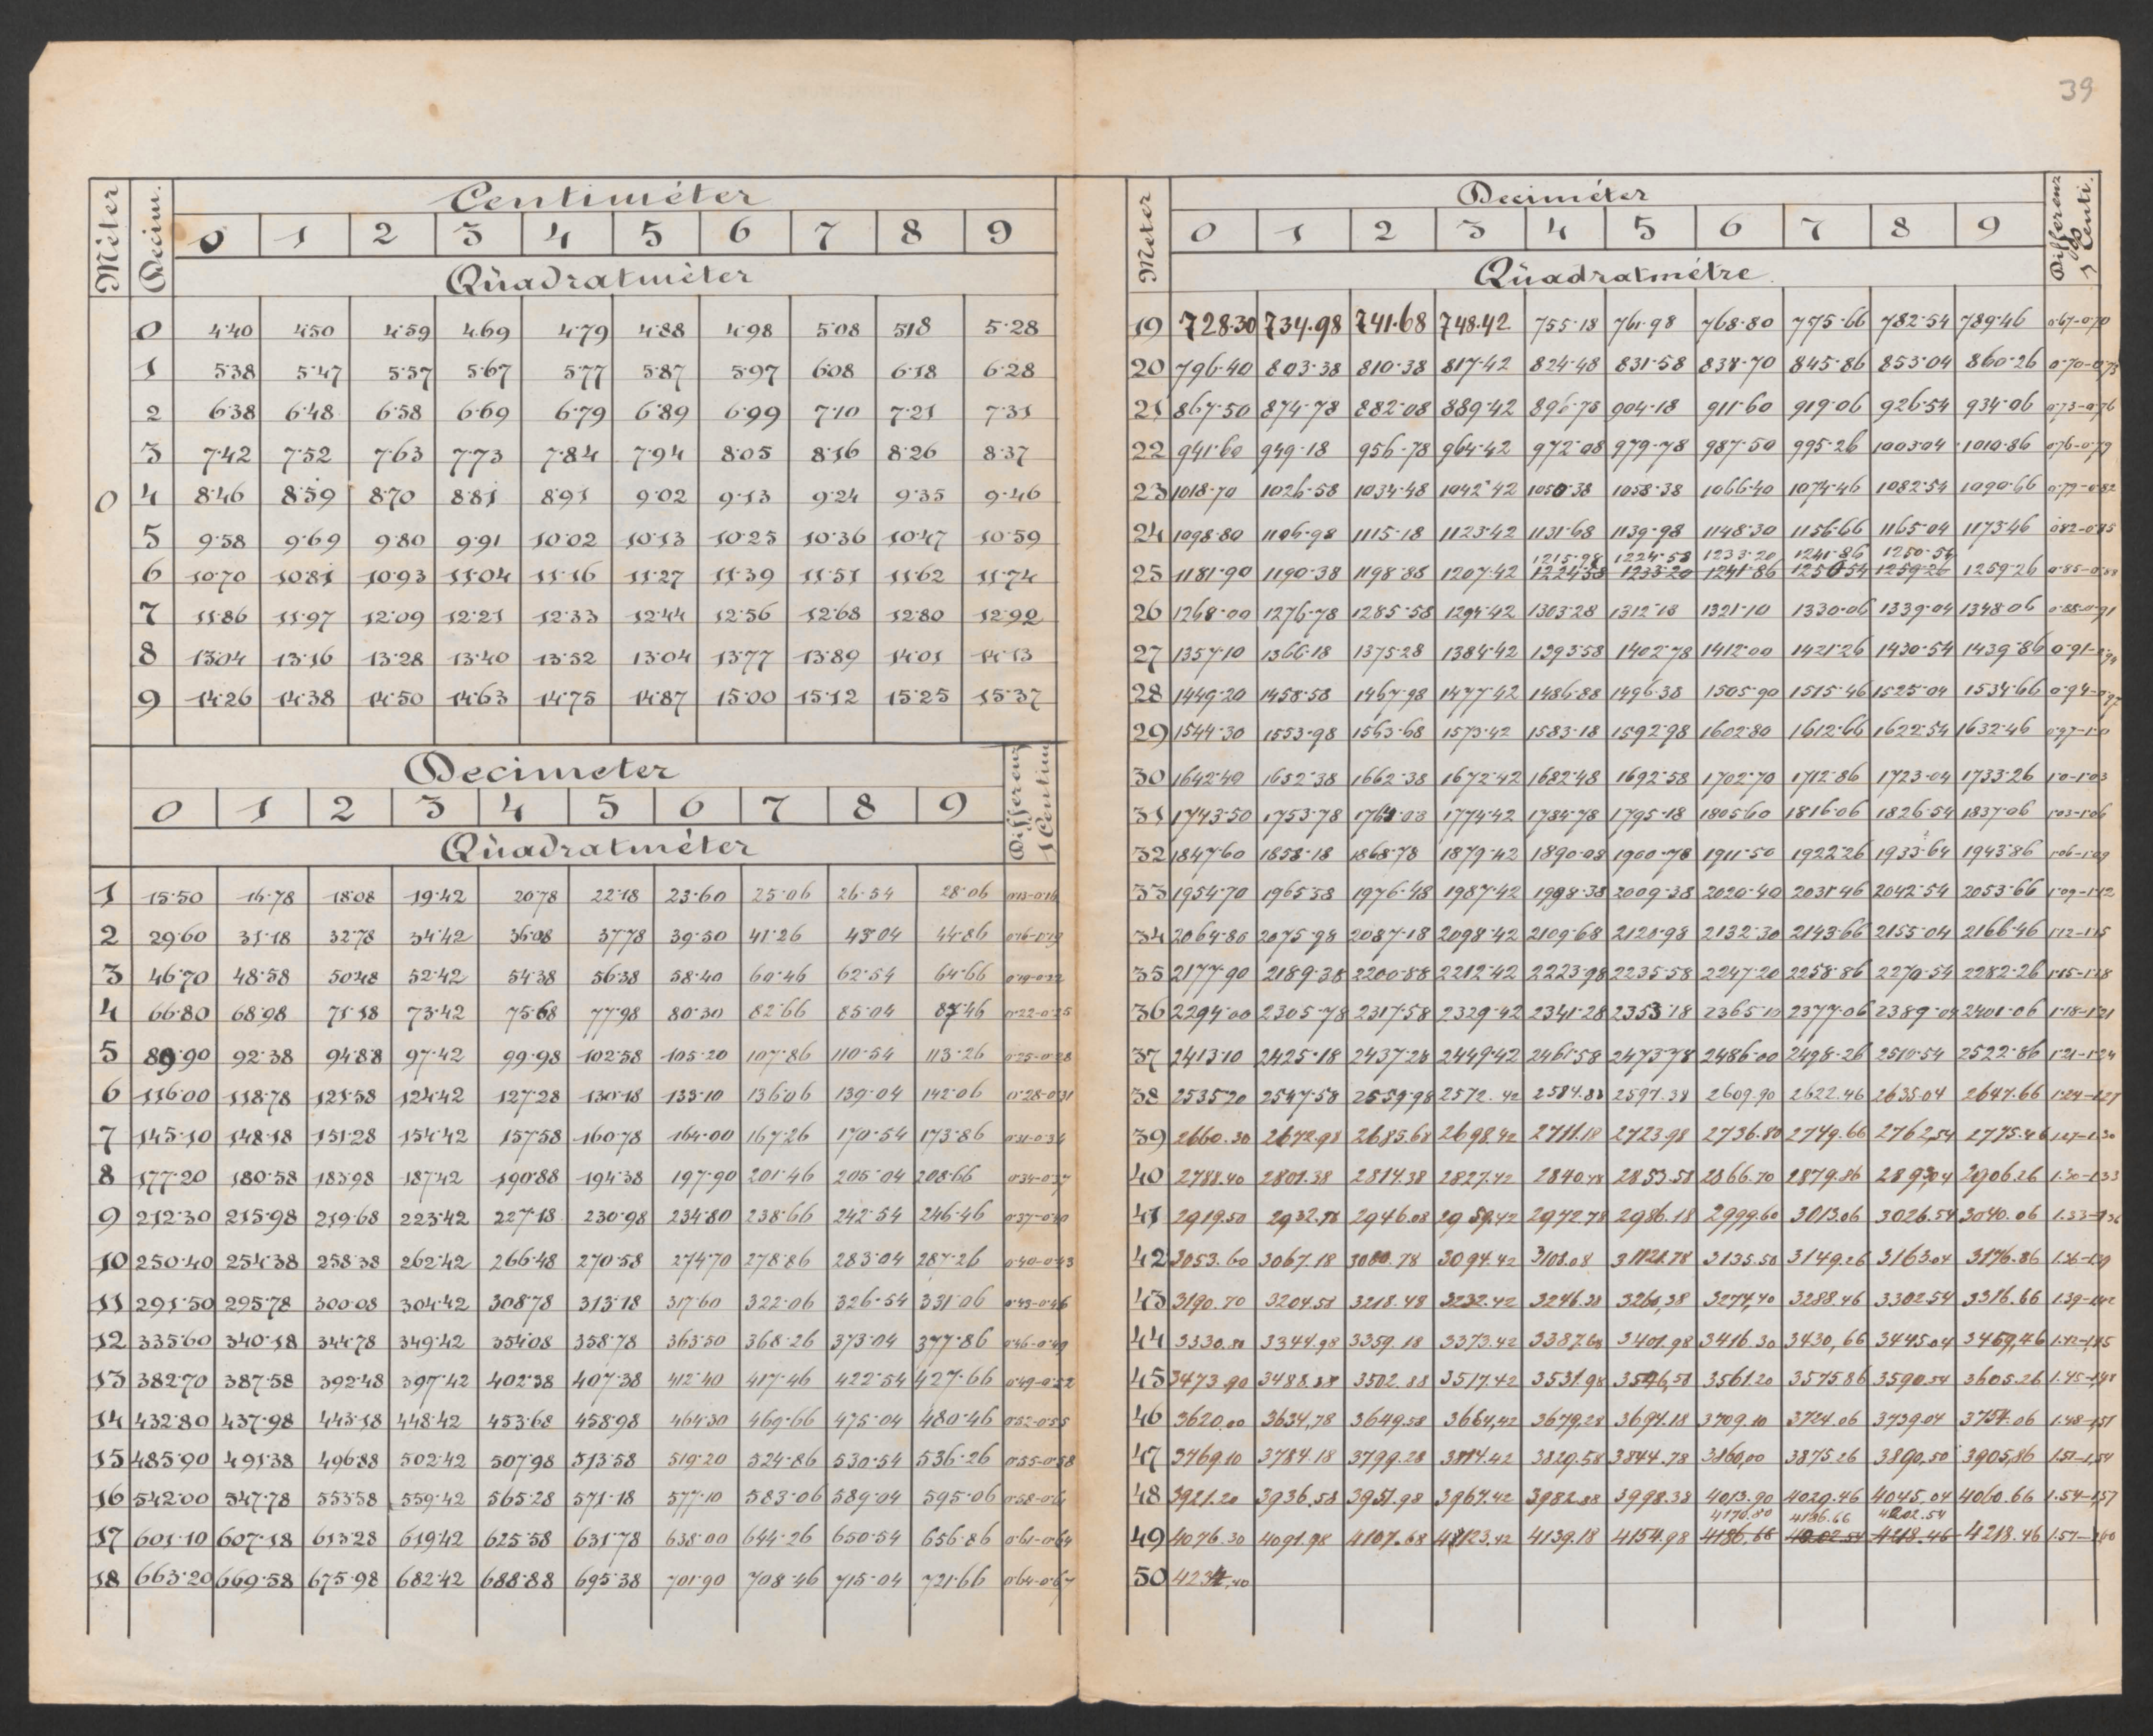 39
Méter Decim. Centiméter
0 1 2 3 4 5 6 7 8 9
Quadratméter
0 0 4·40 4·50 4·59 4·69 4·79 4·88 4·98 5·08 518 5·28
1 5·38 5·47 5·57 5·67 5·77 5·87 5·97 6·08 6·18 6·28
2 6·38 6·48 6·58 6·69 6·79 6·89 6·99 7·10 7·21 7·31
3 7·42 7·52 7·63 7·73 7·84 7·94 8·05 8·16 8·26 8·37
4 8·46 8·59 8·70 8·81 8·91 9·02 9·13 9·24 9·35 9·46
5 9·58 9·69 9·80 9·91 10·02 10·13 10·25 10·36 10·47 10·59
6 10·70 10·81 10·93 11·04 11·16 11·27 11·39 11·51 11·62 11·74
7 11·86 11·97 12·09 12·21 12·33 12·44 12·56 12·68 12·80 12·92
8 13·04 13·16 13·28 13·40 13·52 13·04 13·77 13·89 14·01 14·13
9 14·26 14·38 14·50 14·63 14·75 14·87 15·00 15·12 15·25 15·37
Decimeter Differenz 1 Centim
0 1 2 3 4 5 6 7 8 9
Quadratméter
1 15·50 16·78 18·08 19·42 20·78 22·18 23·60 25·06 26·54 28·06 0·13-0·16
2 29·60 31·18 32·78 34·42 36·08 37·78 39·50 41·26 43·04 44·86 0·16-0·19
3 46·70 48·58 50·48 52·42 54·38 56·38 58·40 60·46 62·54 64·66 0·19-0·22
4 66·80 68·98 71·18 73·42 75·68 77·98 80·30 82·66 85·04 87·46 0·22-0·25
5 89·90 92·38 94·88 97·42 99·98 102·58 105·20 107·86 110·54 113·26 0·25-0·28
6 116·00 118·78 121·58 124·42 127·28 130·18 133·10 136·06 139·04 142·06 0·28-0·31
7 145·10 148·18 151·28 154·42 157·58 160·78 164·00 167·26 170·54 173·86 0·31-0·34
8 177·20 180·58 183·98 187·42 190·88 194·38 197·90 201·46 205·04 208·66 0·34-0·37
9 212·30 215·98 219·68 223·42 227·18 230·98 234·80 238·66 242·54 246·46 0·37-0·40
10 250·40 254·38 258·38 262·42 266·48 270·58 274·70 278·86 283·04 287·26 0·40-0·43
11 291·50 295·78 300·08 304·42 308·78 313·18 317·60 322·06 326·54 331·06 0·43-0·46
12 335·60 340·18 344·78 349·42 354·08 358·78 363·50 368·26 373·04 377·86 0·46-0·49
13 382·70 387·58 392·48 397·42 402·38 407·38 412·40 417·46 422·54 427·66 0·49-0·52
14 432·80 437·98 443·18 448·42 453·68 458·98 464·30 469·66 475·04 480·46 0·52-0·55
15 485·90 491·38 496·88 502·42 507·98 513·58 519·20 524·86 530·54 536·26 0·55-0·58
16 542·00 547·78 553·58 559·42 565·28 571·18 577·10 583·06 589·04 595·06 0·58-0·61
17 601·10 607·18 613·28 619·42 625·58 631·78 638·00 644·26 650·54 656·86 0·61-0·64
18 663·20 669·58 675·98 682·42 688·88 695·38 701·90 708·46 715·04 721·66 0·64-0·67
Meter Deciméter Differenz 1 Centi.
0 1 2 3 4 5 6 7 8 9
Quadratmétre.
19 728·30 734·98 741·68 748·42 755·18 761·98 768·80 775·66 782·54 789·46 0·67-0·70
20 796·40 803·38 810·38 817·42 824·48 831·58 838·70 845·86 853·04 860·26 0·70-0·73
21 867·50 874·78 882·08 889·42 896·78 904·18 911·60 919·06 926·54 934·06 0·73-0·76
22 941·60 949·18 956·78 964·42 972·08 979·78 987·50 995·26 1003·04 1010·86 0·76-0·79
23 1018·70 1026·58 1034·48 1042·42 1050·38 1058·38 1066·40 1074·46 1082·54 1090·66 0·79-0·82
24 1098·80 1106·98 1115·18 1123·42 1131·68 1139·98 1148·30 1156·66 1165·04 1173·46 0·82-0·85
1215·98 1224·58 1233·20 1241·86 1250·54
25 1181·90 1190·38 1198·88 1207·42 1224·58 1233·20 1241·86 1250·54 1259·26 1259·26 0·85-0·88
26 1268·00 1276·78 1285·58 1294·42 1303·28 1312·18 1321·10 1330·06 1339·04 1348·06 0·88-0·91
27 1357·10 1366·18 1375·28 1384·42 1393·58 1402·78 1412·00 1421·26 1430·54 1439·86 0·91-0·94
28 1449·20 1458·58 1467·98 1477·42 1486·88 1496·38 1505·90 1515·46 1525·04 1534·66 0·94-0·97
29 1544·30 1553·98 1563·68 1573·42 1583·18 1592·98 1602·80 1612·66 1622·54 1632·46 0·97-1·0
30 1642·40 1652·38 1662·38 1672·42 1682·48 1692·58 1702·70 1712·86 1723·04 1733·26 1·0-1·03
31 1743·50 1753·78 1764·08 1774·42 1784·78 1795·18 1805·60 1816·06 1826·54 1837·06 1·03-1·06
32 1847·60 1858·18 1868·78 1879·42 1890·08 1900·78 1911·50 1922·26 1933·64 1943·86 1·06-1·09
33 1954·70 1965·58 1976·48 1987·42 1998·38 2009·38 2020·40 2031·46 2042·54 2053·66 1·09-1·12
34 2064·80 2075·98 2087·18 2098·42 2109·68 2120·98 2132·30 2143·66 2155·04 2166·46 1·12-1·15
35 2177·90 2189·38 2200·88 2212·42 2223·98 2235·58 2247·20 2258·86 2270·54 2282·26 1·15-1·18
36 2294·00 2305·78 2317·58 2329·42 2341·28 2353·18 2365·10 2377·06 2389·04 2401·06 1·18-1·21
37 2413·10 2425·18 2437·28 2449·42 2461·58 2473·78 2486·00 2498·26 2510·54 2522·86 1·21-1·24
38 2535·20 2547·58 2559·98 2572.42 2584.88 2597.38 2609.90 2622.46 2635.04 2647.66 1·24-1.27
39 2660.30 2672.98 2685.68 2698.42 2711.18 2723.98 2736.80 2749.66 2762,54 2775.46 1.27-1.30
40 2788.40 2801.38 2814.38 2827.42 2840.48 2853.58 2866.70 2879.86 2893,04 2906.26 1.30-1.33
41 2919.50 2932.78 2946.08 2959.42 2972.78 2986.18 2999.60 3013.06 3026.54 3040.06 1.33-1.36
42 3053.60 3067.18 3080.78 3094.42 3108.08 3121.78 3135.50 3149.26 3163.04 3176.86 1.36-1.39
43 3190.70 3204.58 3218.48 3232.42 3246.38 3260,38 3274,40 3288.46 3302.54 3316.66 1.39-1.42
44 3330.80 3344.98 3359.18 3373.42 3387.68 3401.98 3416.30 3430,66 3445.04 3459,46 1.42-1.45
45 3473.90 3488.38 3502.88 3517.42 3531.98 3546,58 3561.20 3575.86 3590.54 3605.26 1.45-1.48
46 3620.00 3634,78 3649.58 3664,42 3679,28 3694.18 3709.10 3724.06 3739.04 3754.06 1.48-1.51
47 3769.10 3784.18 3799.28 3814.42 3829.58 3844.78 3860,00 3875.26 3890,50 3905,86 1.51-1.54
48 3921.20 3936,58 3951.98 3967.42 3982.88 3998.38 4013.90 4029.46 4045.04 4060.66 1.54-1,57
4170.80 4186.66 4202.54
49 4076.30 4091.98 4107.68 4123.42 4139.18 4154.98 4186.66 4202.54 4218.46 4218.46 1.57-1.60
50 4234,40